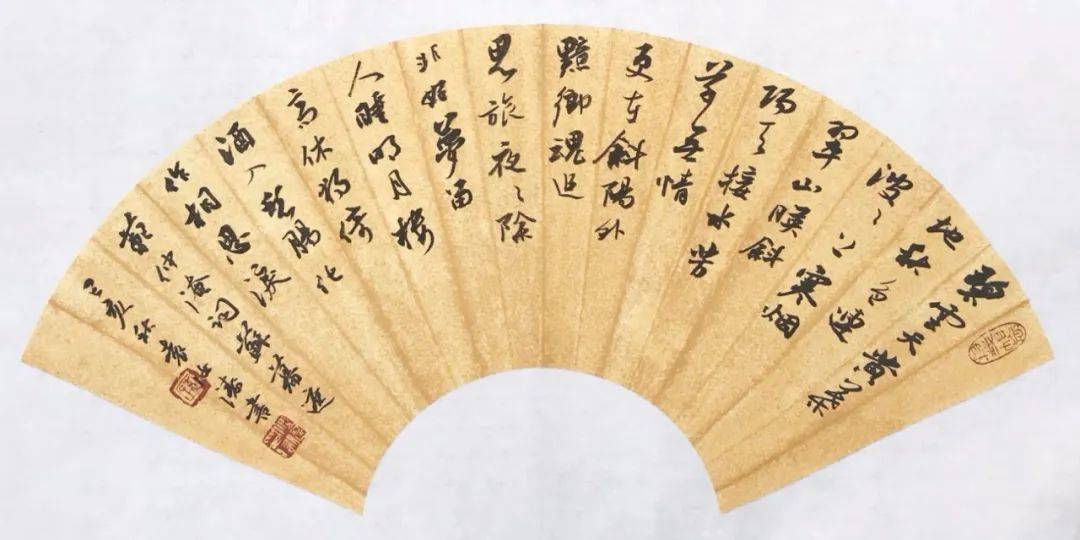 碧雲天黃葉
地秋色連
波〻上寒烟
翠山暎斜
陽天接水芳
草無情
更在斜陽外
黯鄉魂追
思旅夜〻除
非好夢留
人睡明月樓
高休獨倚
酒入愁腸化
作相思淚蘇幕遮
范仲淹詞
己亥秋 書